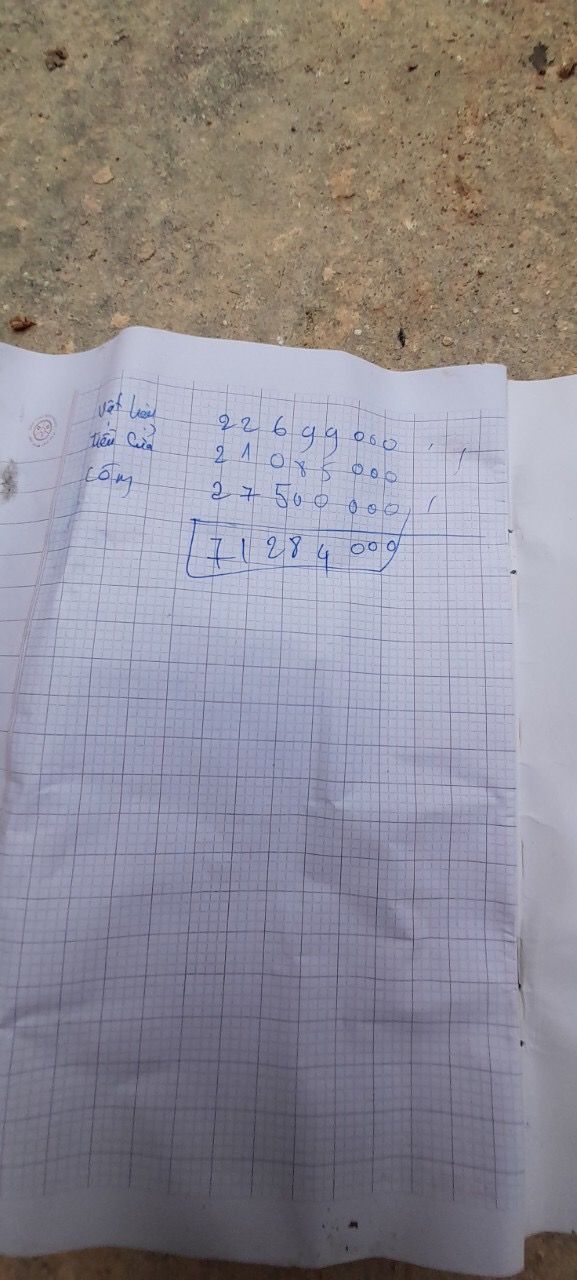 vật liệu 22 699 000
tiền cửa 21 085 000
công 27 500 000
71 284 000